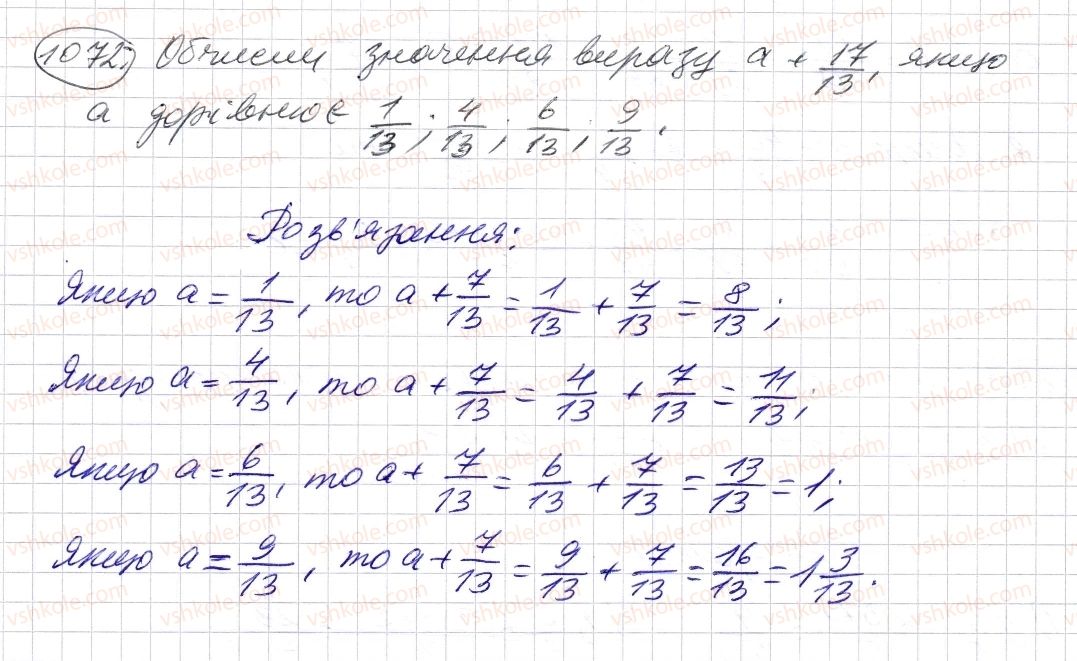 1072. Обчисли значення виразу a + 17/13, якщо
a дорівнює 1/13; 4/13; 6/13; 9/13.
Розв'язання:
Якщо a = 1/13, то a + 7/13 = 1/13 + 7/13 = 8/13;
Якщо a = 4/13, то a + 7/13 = 4/13 + 7/13 = 11/13;
Якщо a = 6/13, то a + 7/13 = 6/13 + 7/13 = 13/13 = 1;
Якщо a = 9/13, то a + 7/13 = 9/13 + 7/13 = 16/13 = 1 3/13.